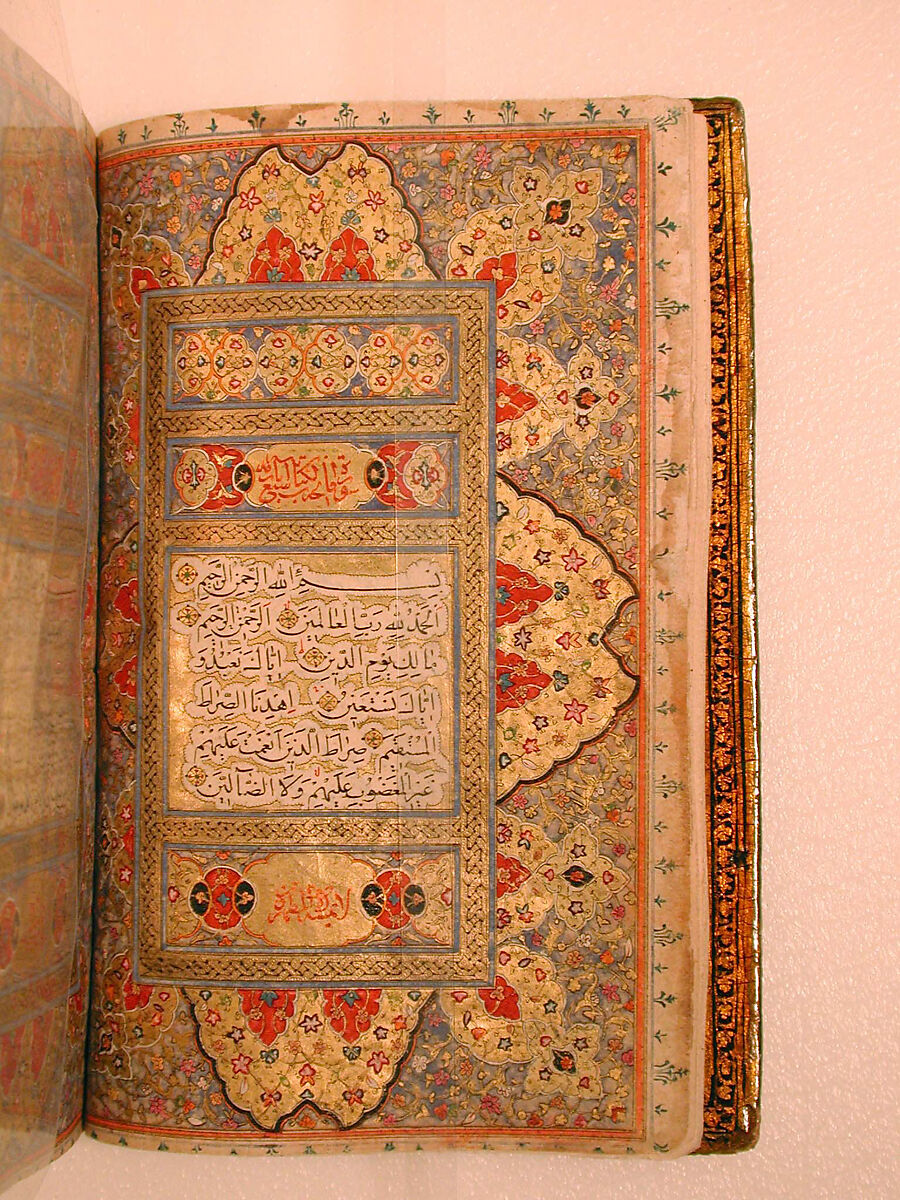 سورة فاتحة الكتاب سبع آيات
بسم الله الرحمن الرحيم
الحمد لله رب العالمين الرحمن الرحيم
مالك يوم الدين اياك نعبد و
اياك نستعين اهدنا الصراط
المستقيم صراط الذين انعمت عليهم
غير المغضوب عليهم ولا الضالين
لا يمسه الا المطهرون